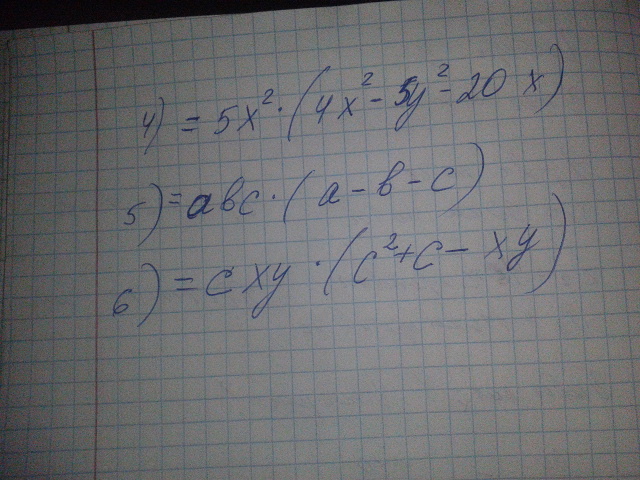 4) = 5x² · (4x² - 5y² - 20x)
5) = abc · (a - b - c)
6) = cxy · (c² + c - xy)